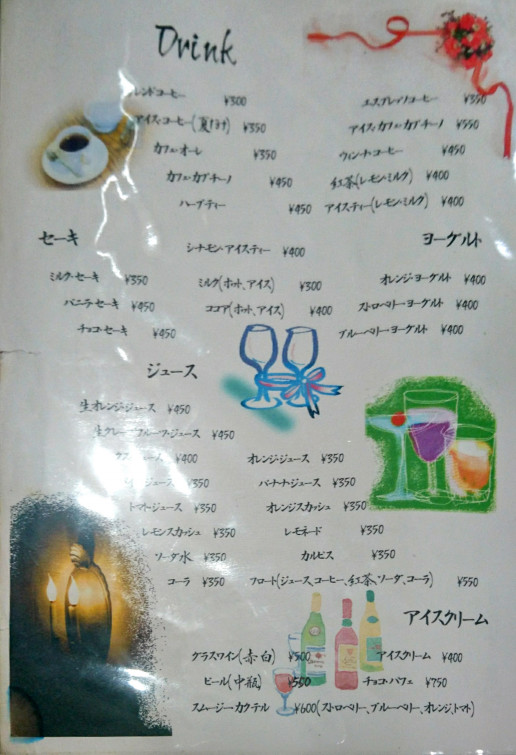 Drink
ブレンドコーヒー ¥300 エスプレッソコーヒー ¥350
アイスコーヒー(夏だけ) ¥350 アイスカフェカプチーノ ¥550
カフェ・オーレ ¥350 ウィンナーコーヒー ¥450
カフェ・カプチーノ ¥450 紅茶(レモン・ミルク) ¥400
ハーブティー ¥450 アイスティー(レモン・ミルク) ¥400
セーキ シナモン・アイスティー ¥400 ヨーグルト
ミルク・セーキ ¥350 ミルク(ホット、アイス) ¥300 オレンジ・ヨーグルト ¥400
バニラ・セーキ ¥450 ココア(ホット、アイス) ¥400 ストロベリー・ヨーグルト ¥400
チョコ・セーキ ¥450 ブルーベリー・ヨーグルト ¥400
ジュース
生オレンジ・ジュース ¥450
生グレープフルーツ・ジュース ¥450
¥400 オレンジ・ジュース ¥350
ジュース ¥350 バナナ・ジュース ¥350
トマト・ジュース ¥350 オレンジスカッシュ ¥350
レモンスカッシュ ¥350 レモネード ¥350
ソーダ水 ¥350 カルピス ¥350
コーラ ¥350 フロート(ジュース、コーヒー、紅茶、ソーダ、コーラ) ¥550
アイスクリーム
グラスワイン(赤白) ¥500 アイスクリーム ¥400
ビール(中瓶) ¥500 チョコ・パフェ ¥750
スムージーカクテル ¥600(ストロベリー、ブルーベリー、オレンジ、トマト)